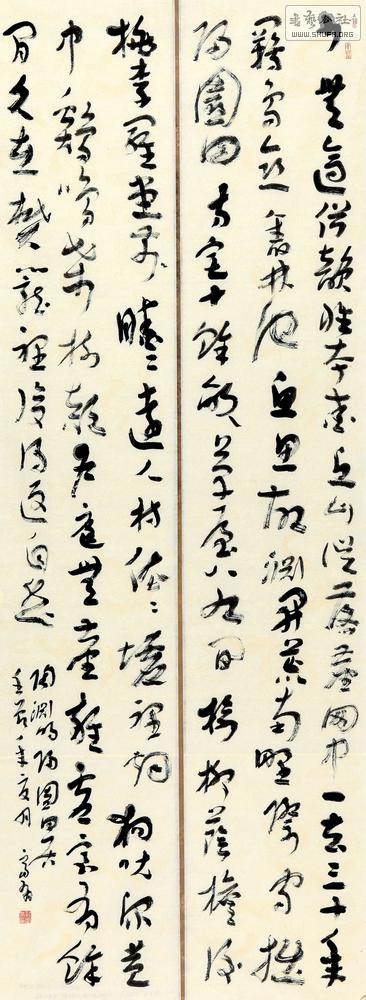 少無適俗韻性本愛丘山誤落塵網中一去三十年
羈鳥戀舊林池魚思故淵開荒南野際守拙
歸園田方宅十餘畝草屋八九間榆柳蔭檐後
桃李羅堂前曖〻遠人村依〻墟裡煙狗吠深巷
中雞鳴桑樹顛戶庭無塵雜虛室有餘
閒久在樊籠裡復得返自然
陶淵明歸園田居
壬辰年夏月
WWW.SHUFA.ORG